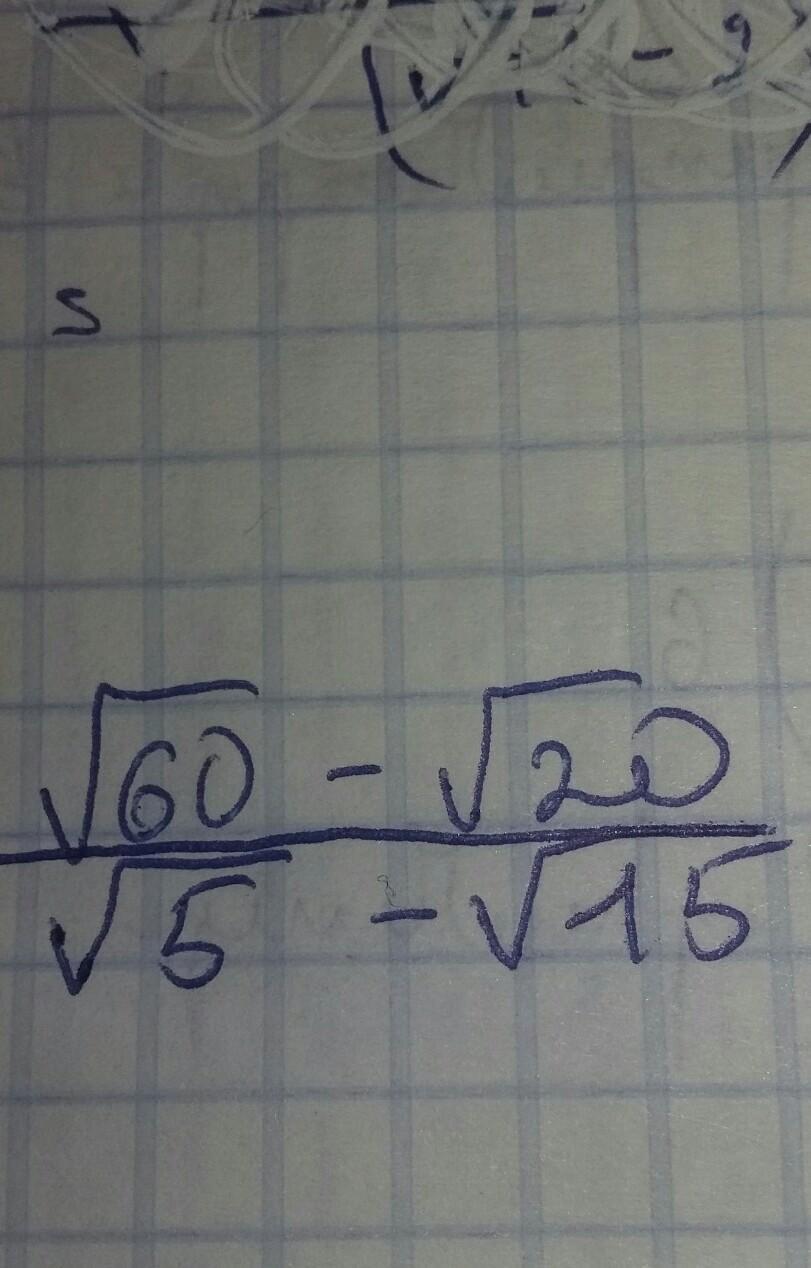 s
√60 - √20
√5 - √15